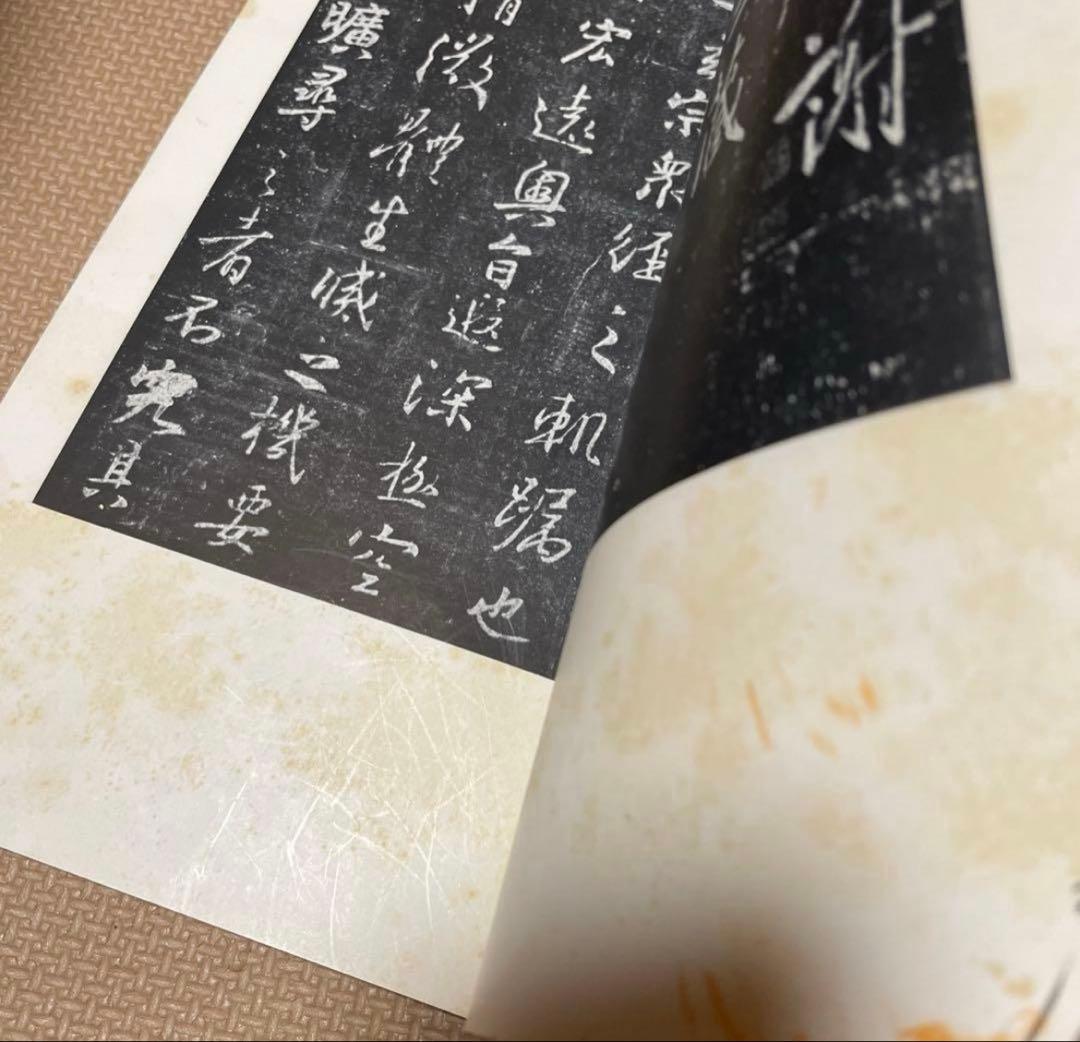 謝
宗衆經之軌躅也
宏遠奧旨遐深極空
微體生滅之機要
曠尋之者不究其